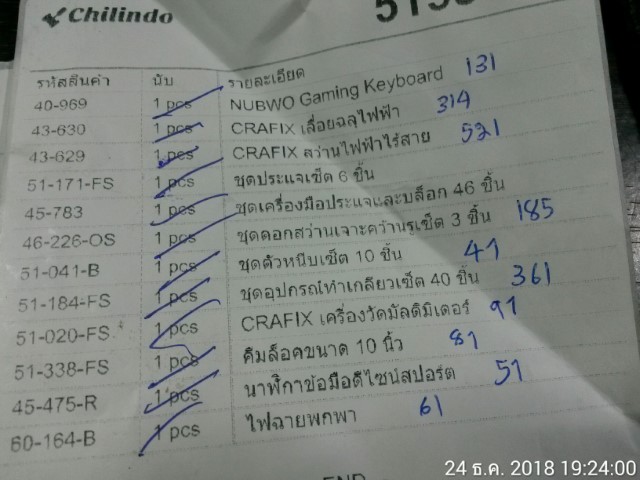 Chilindo
รหัสสินค้า นับ รายละเอียด
40-969 1 pcs NUBWO Gaming Keyboard 131
43-630 1 pcs CRAFIX เลื่อยฉลุไฟฟ้า 314
43-629 1 pcs CRAFIX สว่านไฟฟ้าไร้สาย 521
51-171-FS 1 pcs ชุดประแจเซ็ต 6 ชิ้น
45-783 1 pcs ชุดเครื่องมือประแจและบล็อก 46 ชิ้น
46-226-OS 1 pcs ชุดดอกสว่านเจาะคว้านรูเซ็ต 3 ชิ้น 185
51-041-B 1 pcs ชุดตัวหนีบเซ็ต 10 ชิ้น 41
51-184-FS 1 pcs ชุดอุปกรณ์ทำเกลียวเซ็ต 40 ชิ้น 361
51-020-FS 1 pcs CRAFIX เครื่องวัดมัลติมิเตอร์ 91
51-338-FS 1 pcs คีมล็อคขนาด 10 นิ้ว 81
45-475-R 1 pcs นาฬิกาข้อมือดีไซน์สปอร์ต 51
60-164-B 1 pcs ไฟฉายพกพา 61
24 ธ.ค. 2018 19:24:00